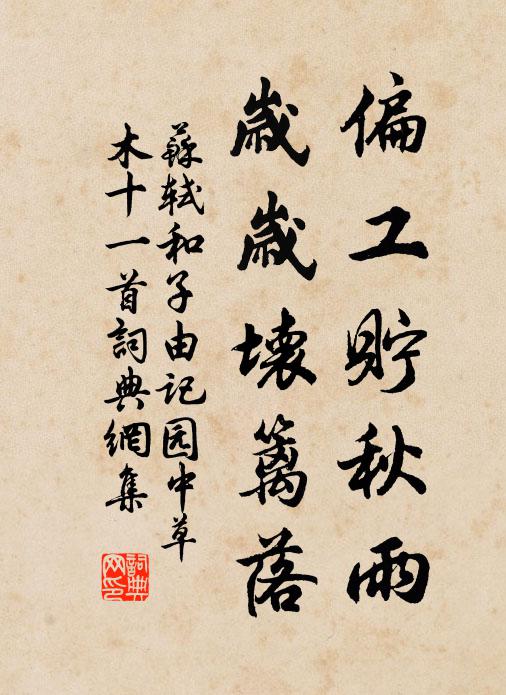 偏工貯秋雨
歲歲壞籬落
蘇軾和子由记园中草
木十一首詞典網集
詞典
网印